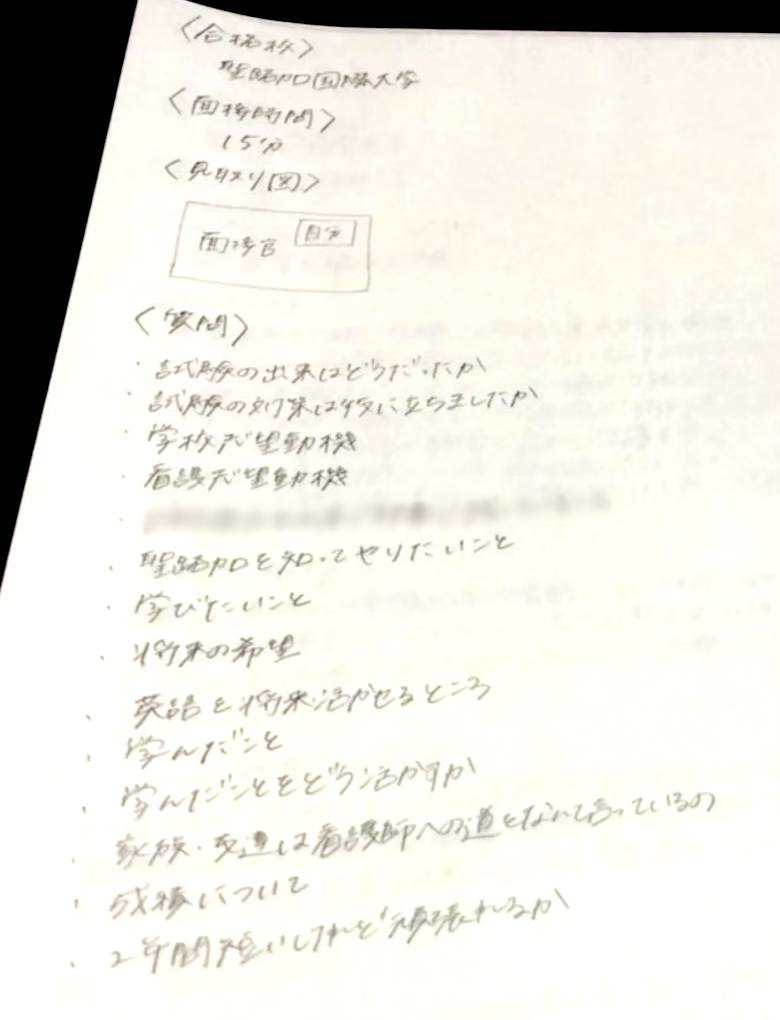 〈合格校〉
聖路加国際大学
〈面接時間〉
15分
〈見取り図〉
面接官 自分
〈質問〉
・試験の出来はどうだったか
・試験の対策は役に立ちましたか
・学校志望動機
・看護志望動機
・聖路加を知ってやりたいこと
・学びたいこと
・将来の希望
・英語を将来活かせるところ
・学んだこと
・学んだことをどう活かすか
・家族・友達は看護師への道をなんて言っているの
・成績について
・2年間短いけれど頑張れるか